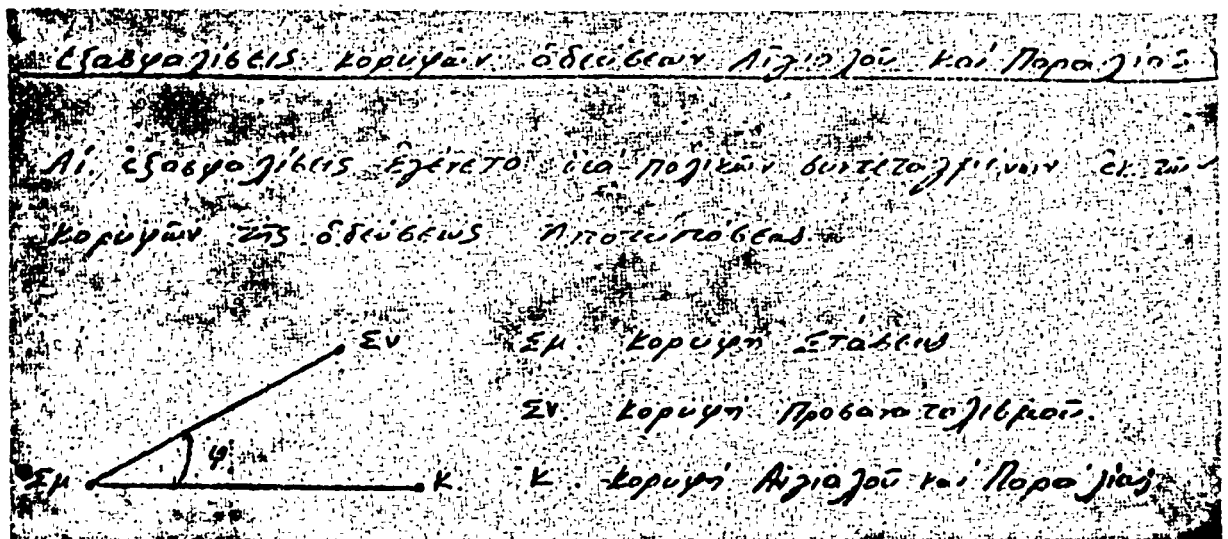 Ἐξασφαλίσεις κορυφῶν ὁδεύσεων Αἰγιαλοῦ καί Παραλίας
Αἱ ἐξασφαλίσεις ἐγένετο διά πολικῶν συντεταγμένων ἐκ τῶν
κορυφῶν τῆς ὁδεύσεως Ἀποτυπώσεως.
Σν
Σμ. κορυφή Στάσεως
Σν. κορυφή Προσανατολισμοῦ.
φ.
Σμ
Κ.
Κ. κορυφή Αἰγιαλοῦ καί Παραλίας.